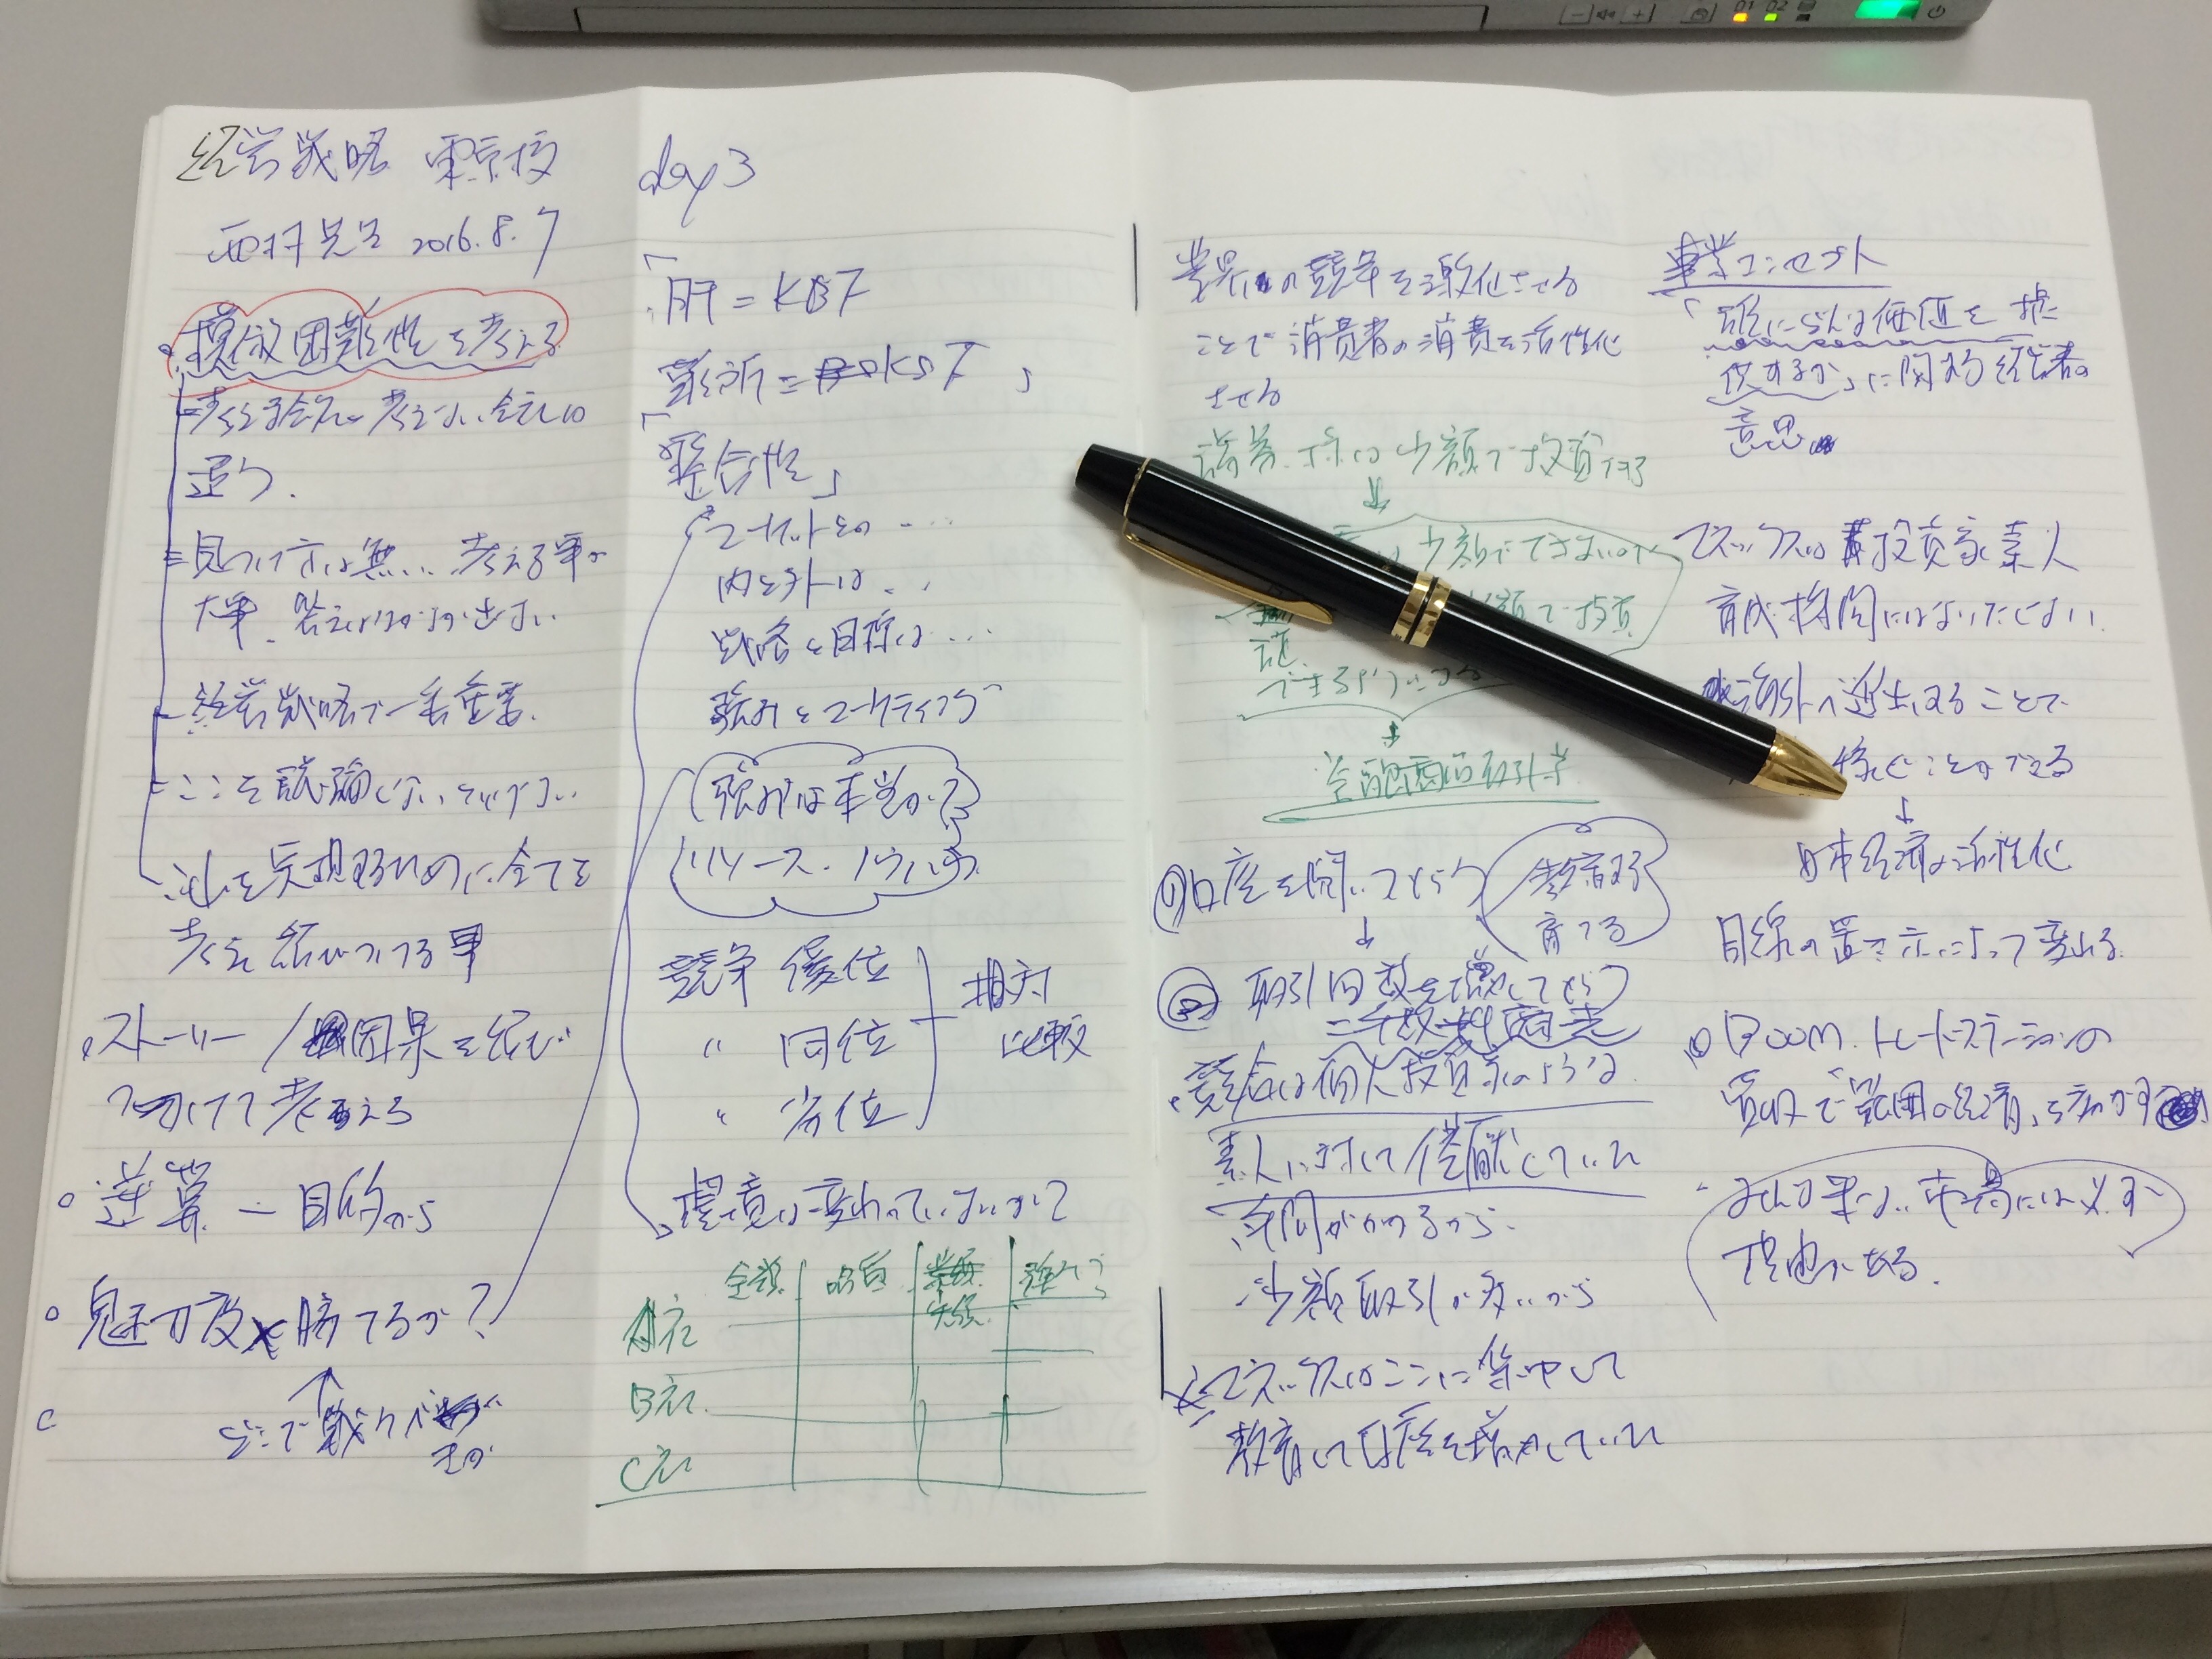 経営戦略 東京校 day3
西村先生 2016.8.7
・模倣困難性を考える
=考える会社と考えない会社は
違う.
=見つけ方は無い. 考える事が
大事. 答えはなかなか出ない.
- 経営戦略で一番重要.
- ここを議論しないといけない
これを実現するために全てを
考え結びつける事
・ストーリー/因果を結び
つけて考える
○逆算 - 目的から
○魅力度×勝てるか?
↑
どこで戦うべ
きか
「肝=KBF
難所=KSF」
「整合性」
マーケットとの…
内と外は…
戦略と目標は…
強みとマーケティング
強みは本当か?
(リソース・ノウハウ)
競争 優位
〃 同位
〃 劣位
相対
比較
環境は変わっていないか?
全額
強み?
A社
B社
C社
業界の競争を激化させる
ことで消費者の消費を活性化
させる
証券 株は少額で投資できる
↓
少額でできないので
額で投資
できるようにする
↓
金融商品取引業
①口座を開いてもらう
教育する
育てる
↓
② 取引回数を増やしてもらう
=手数料商売
・競合は個人投資家のような
素人に対して 躊躇していた
・時間がかかるから
・少額取引が多いから
マネックスはここに集中して
教育して口座を増やしていった
事業コンセプト
「誰にどんな価値を提
供するか」に関する経営者の
意思
マネックスは 投資家素人
育成機関にはなったくない.
海外へ進出することで
稼ぐことができる
↓
日本経済の活性化
目線の置き方によって変わる.
BOOM. トレードステーションの
買収で「範囲の経済」を効かす
・みんな来ない市場には必ず
理由がある.